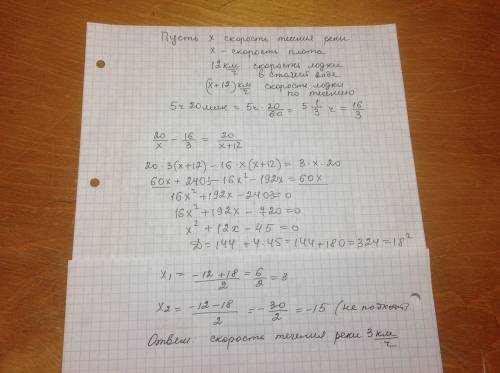 Пусть x скорость течения реки
x - скорость плота
12 км/ч скорость лодки
в стоячей воде
(x+12) км/ч скорость лодки
по течению
5ч 20 мин = 5ч · 20/60 = 5 1/3 ч = 16/3
20/x - 16/3 = 20/x+12
20·3(x+12) - 16·x(x+12) = 3·x·20
60x + 240·3 - 16x² - 192x = 60x
16x² + 192x - 240·3 = 0
16x² + 192x - 720 = 0
x² + 12x - 45 = 0
D = 144 + 4·45 = 144 + 180 = 324 = 18²
x₁ = -12+18/2 = 6/2 = 3
x₂ = -12-18/2 = -30/2 = -15 (не подход)
Ответ скорость течения реки 3 км/ч